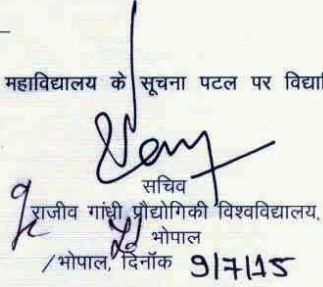 महाविद्यालय के सूचना पटल पर विद्यार्
सचिव
राजीव गांधी प्रौद्योगिकी विश्वविद्यालय,
भोपाल
/भोपाल, दिनॉक 9/7/15